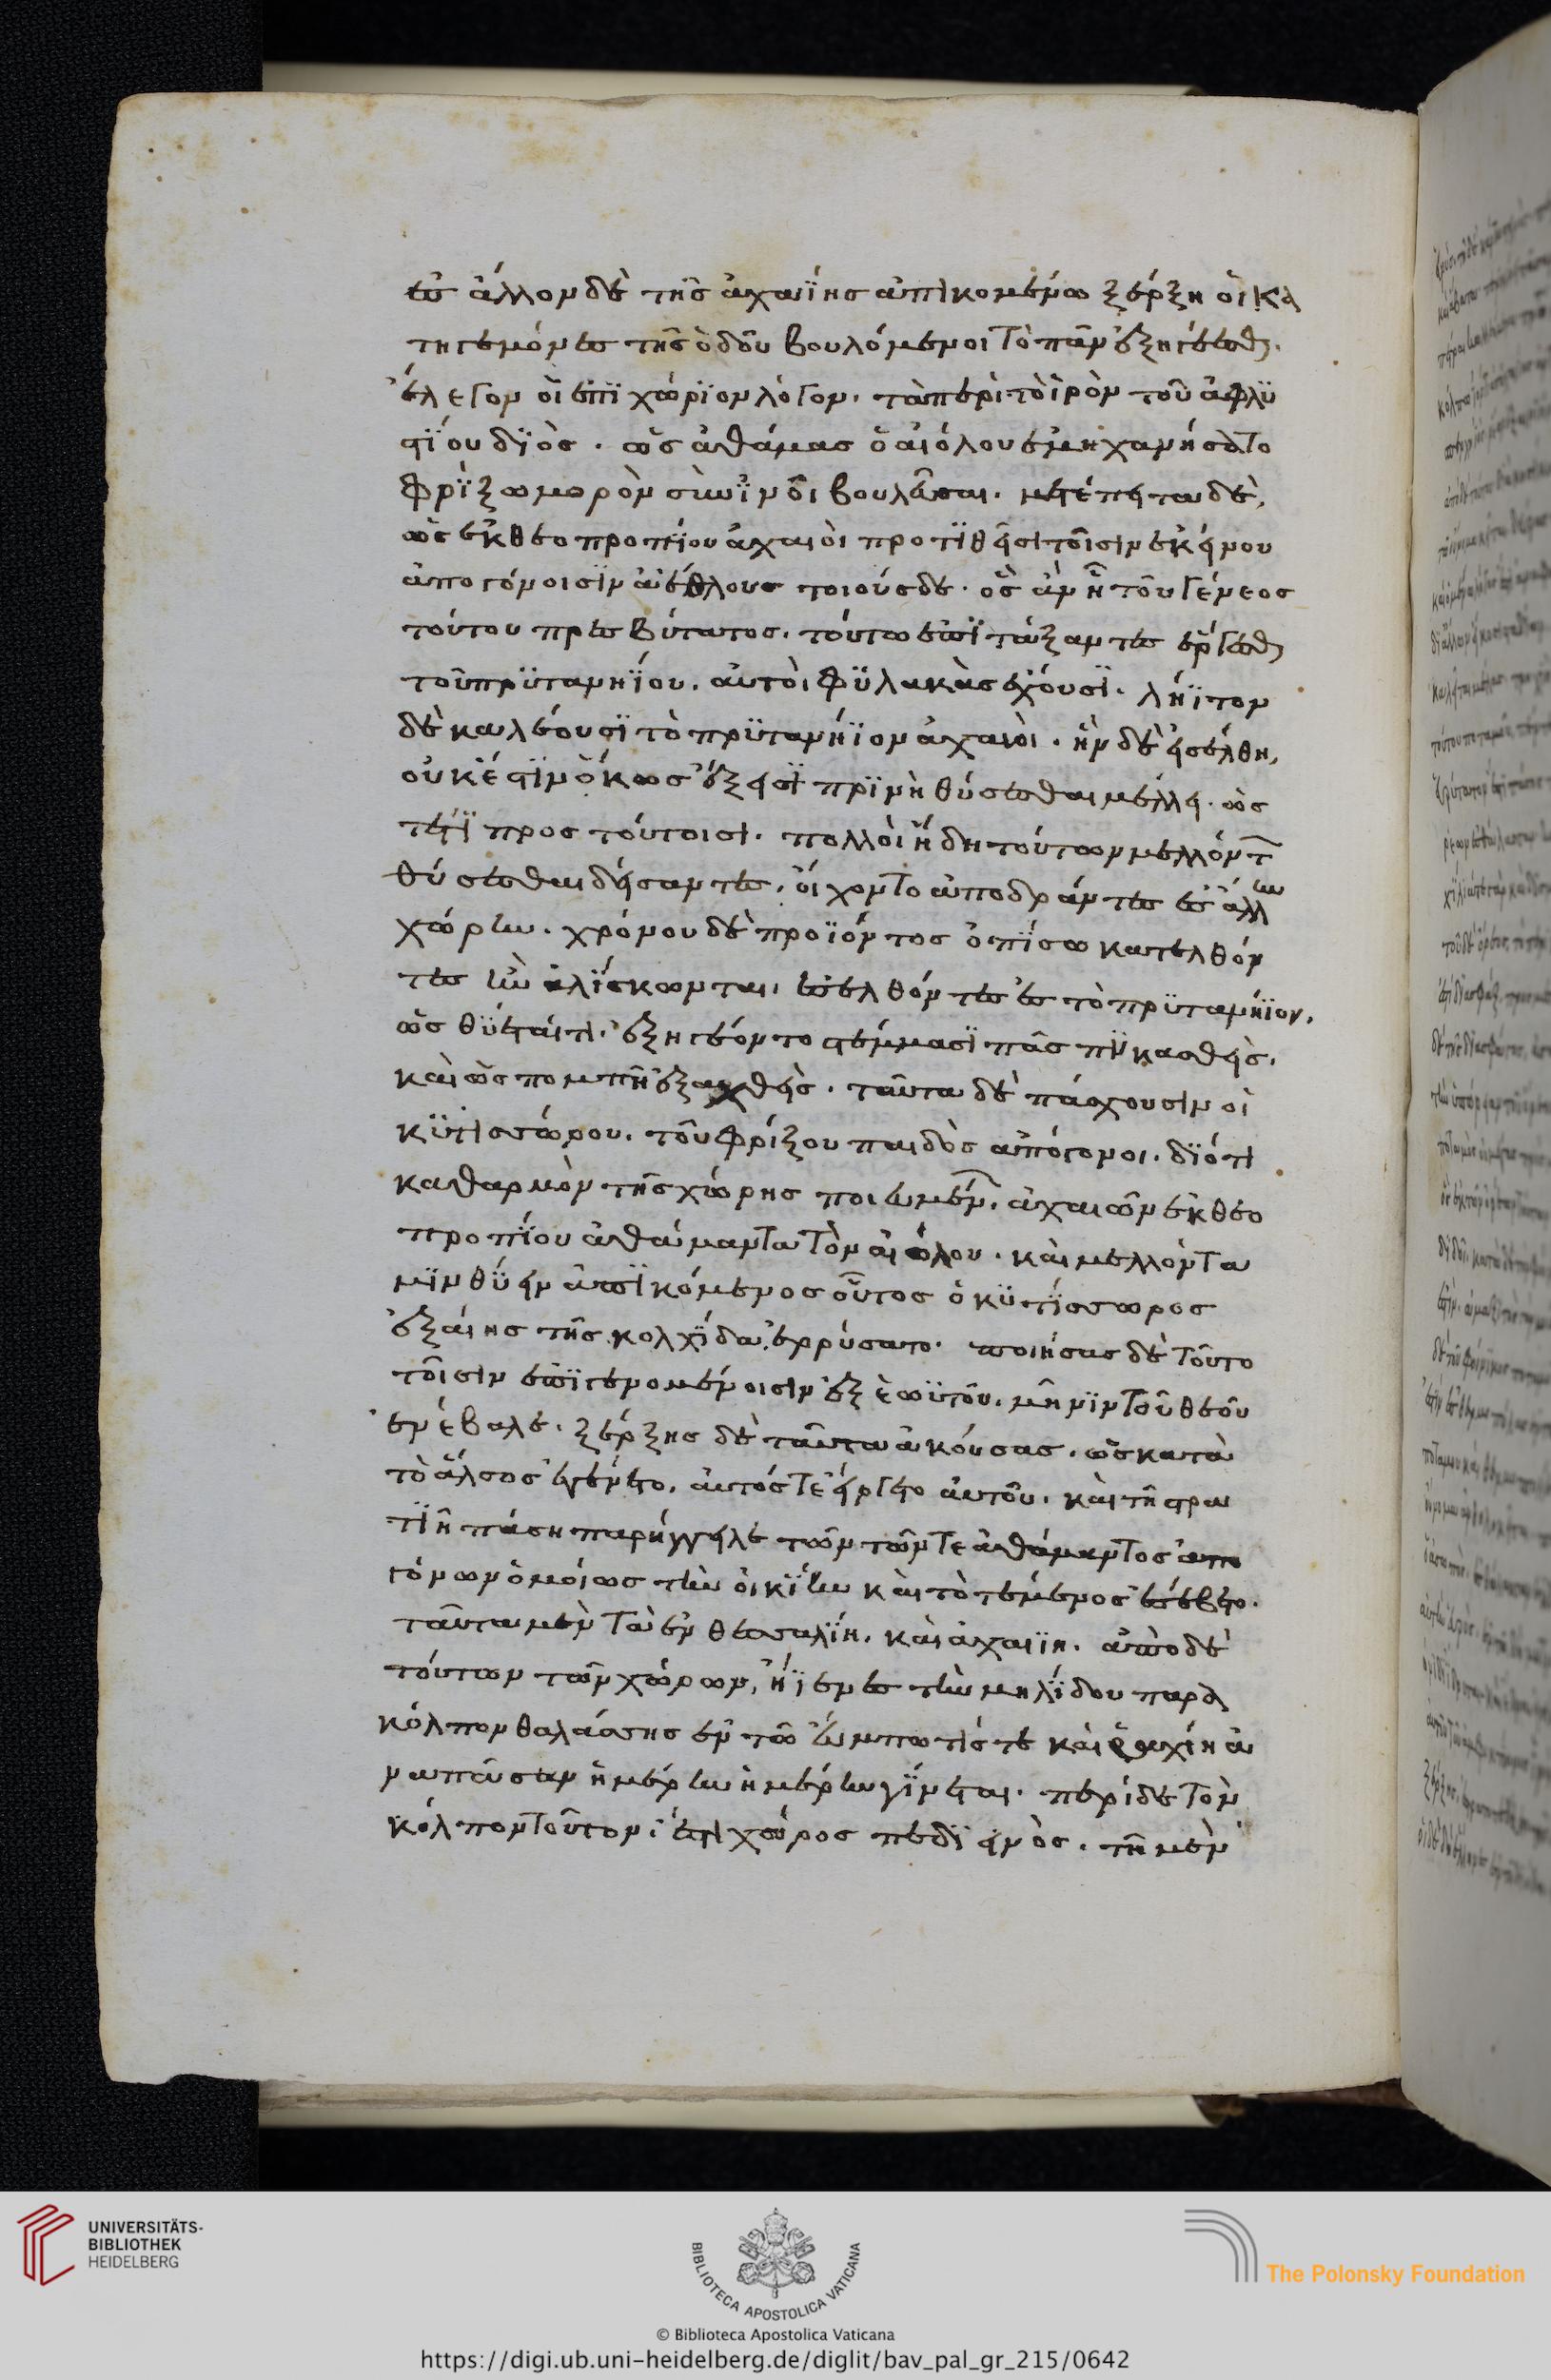 ἐς ἄλλον δὲ τῆς ἀχαιΐης ἀπικομένω ξέρξη οἱ κα
τηγεμόνες τῆς ὁδοῦ βουλόμενοι τὸ πᾶν ἐξηγέεσθαι.
ἔλεγον οἱ ἐπιχώριον λόγον. τὰ περὶ τὸ ἱρὸν τοῦ ἀφλυ
στίου διὸς. ὡς ἀθάμας ὁ αἰόλου ἐμηχανήσατο
φρίξω μωρὸν σὺν ἰνοῖ βουλεῦσαι. μετέπειτα δὲ,
ὡς ἐκ θεοπροπίου ἀχαιοὶ προτιθεῖσι τοῖσιν ἐκείνου
ἀπογόνοισιν ἀέθλους τοιούσδε. ὃς ἂν ῇ τοῦ γένεος
τούτου πρεσβύτατος. τούτω ἐπιτάξαντες ἔργεσθαι
τοῦ πρυτανηΐου. αὐτοὶ φυλακὰς ἔχουσι. λήϊτον
δὲ καλέουσι τὸ πρυτανήϊον ἀχαιοὶ. ἢν δὲ ἐσέλθη,
οὐκ ἔστιν ὅκως ἔξεισι πρὶν ἢ θύσεσθαι μέλλει. ὥς
τέτι προς τούτοισι. πολλοὶ ἤδη τούτων μελλόντ
θύσεσθαι δείσαντες. οἴχοντο ἀποδράντες ἐς ἄλλην
χώρην. χρόνου δὲ προϊόντος ὀπίσω κατελθόν
τες ἢν ἁλίσκωνται. ἐσελθόντες ἐς τὸ πρυτανήϊον.
ὡς θύεταί τι. ἐξηγέοντο στέμμασι πᾶς πυκασθεὶς.
καὶ ὡς πομπῆ ἐξαχθεὶς. ταῦτα δὲ πάσχουσιν οἱ
κυτισσώρου. τοῦ φρίξου παιδὸς ἀπόγονοι. διότι
καθαρμὸν τῆς χώρης ποιευμέν. ἀχαιῶν ἐκ θεο
προπίου ἀθάμαντα τὸν αἰόλου. καὶ μελλόντα
μιν θύειν ἀπικόμενος οὗτος ὁ κυτίσσωρος
ἐξ αἴης τῆς κολχίδα. ἐρρύσατο. ποιήσας δὲ τοῦτο
τοῖσιν ἐπιγενομένοισιν ἐξ ἑωυτοῦ. μῆνιν τοῦ θεοῦ
ἐνέβαλε. ξέρξης δὲ ταῦτα ἀκούσας. ὡς κατὰ
τὸ ἄλσος ἐγένετο. αὐτός τε ἔργετο αὐτοῦ. καὶ τῆ στρα
τιῆ πάση παρήγγειλε τοῶν τῶν τε ἀθάμαντος ἀπο
γόνων ὁμοίως τὴν οἰκίην καὶ τὸ τέμενος ἐσέβετο.
ταῦτα μὲν τὰ ἐν θεσσαλίη. καὶ ἀχαιίη. ἀπὸ δὲ
τούτων τῶν χώρων, ἤϊεν ἐς τὴν μηλίδου παρὰ
κόλπον θαλάσσης ἐν τῶ ἄμπωτίς τε καὶ ῥαχίη ἀ
νὰ πᾶσαν ἡμέρην ἡμέρην γίνεται. περὶ δὲ τὸν
κόλπον τοῦτον. ἔστι χῶρος πεδιεινὸς. τῆ μὲν
UNIVERSITÄTS-
BIBLIOTHEK
HEIDELBERG
BIBLIOTECA APOSTOLICA VATICANA
The Polonsky Foundation
© Biblioteca Apostolica Vaticana
https://digi.ub.uni-heidelberg.de/diglit/bav_pal_gr_215/0642